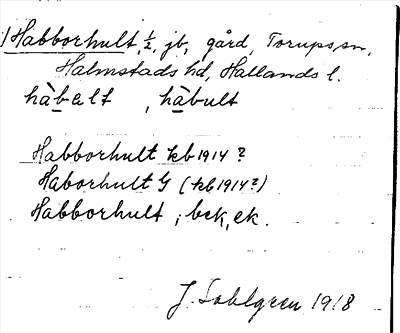 1) Habborhult, ½, jb, gård, Torups sn,
Halmstads hd, Hallands l.
hàbalt, hàbult
Habborhult kb 1914?
Haborhult G (kb 1914?)
Habborhult, bek, ek.
J. Sahlgren 1918